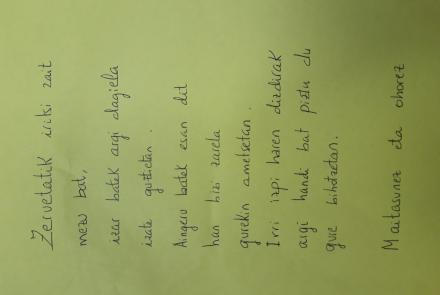 Zeruetatik iritsi zait
mezu bat,
izar batek argi dagiela
izate guztietan.
Aingeru batek esan dit
han bizi zarela
gurekin ametsetan.
Irri izpi haren dizdirak
argi handi bat piztu du
gure bihotzetan.
Maitasunez eta ohorez